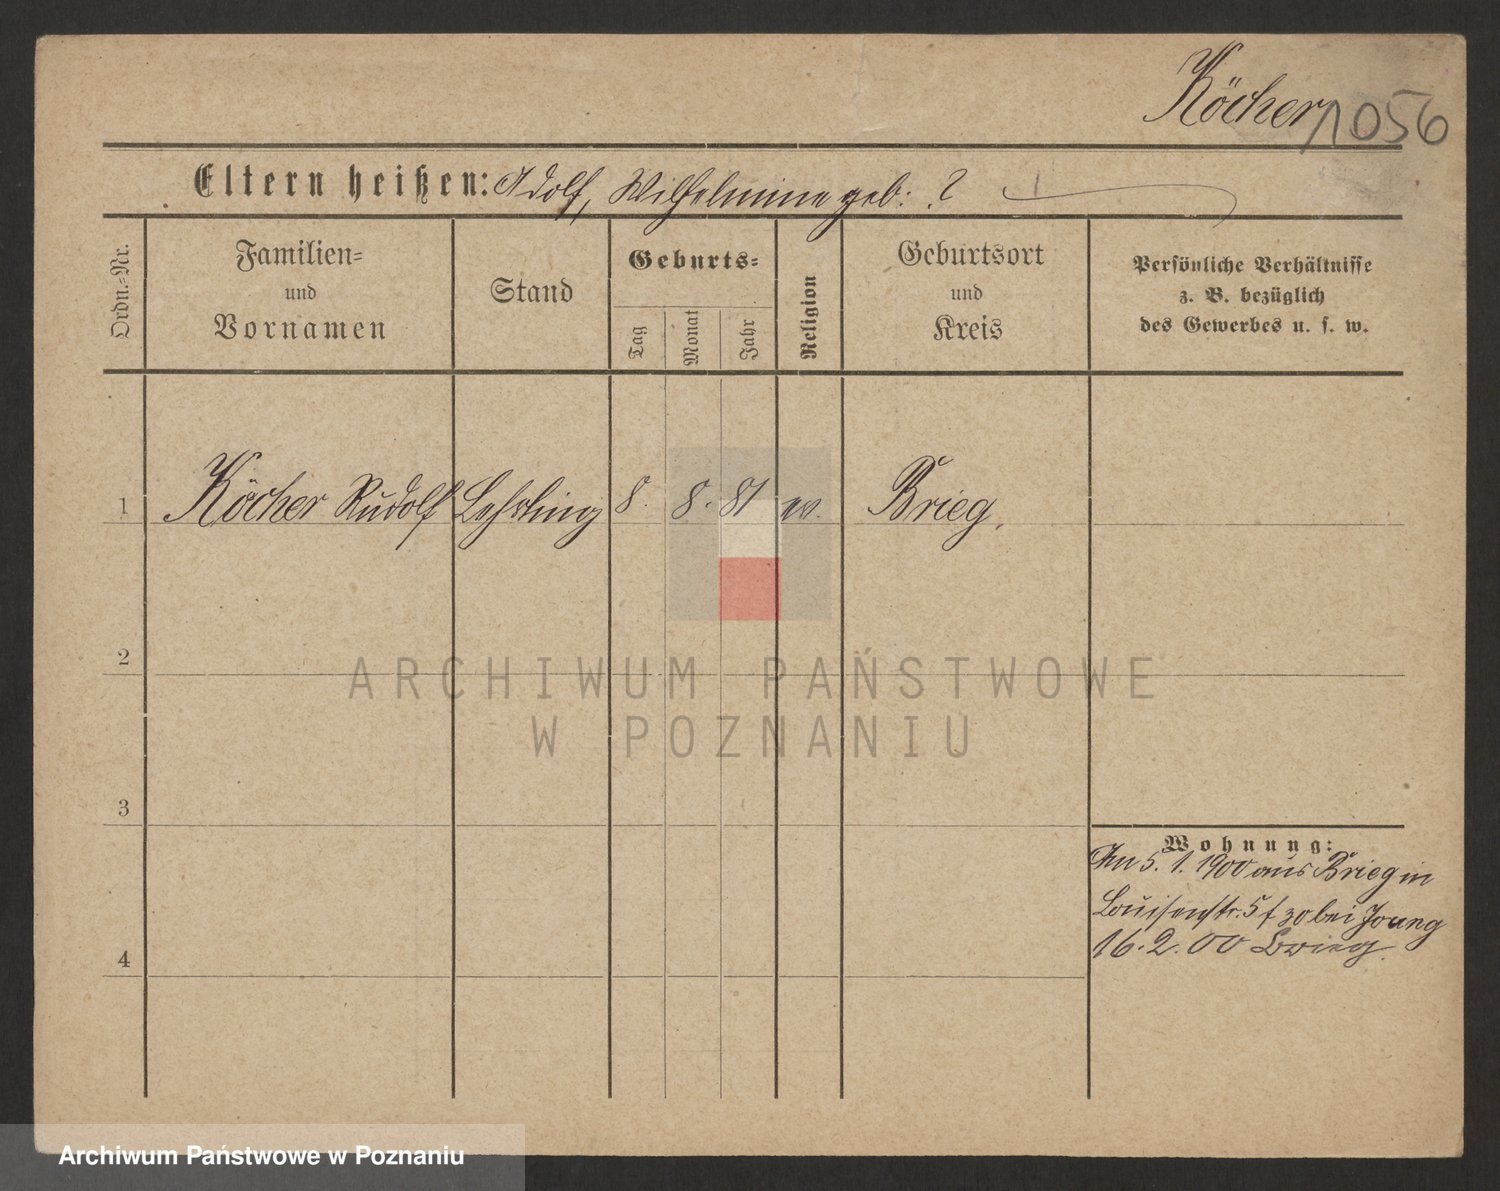 Köcher 1056
Eltern heißen: Adolf, Wilhelmine geb: ?
Ordn.-Nr.
Familien-
und
Vornamen
Stand
Geburts-
Tag
Monat
Jahr
Religion
Geburtsort
und
Kreis
Persönliche Verhältnisse
z. B. bezüglich
des Gewerbes u. s. w.
1 Köcher Rudolf Lehrling 8. 8. 81 ev. Brieg.
2
ARCHIWUM PAŃSTWOWE
W POZNANIU
3
Wohnung:
Am 5. 1. 1900 aus Brieg in
Louisenstr. 5 f zo bei Joung
16. 2. 00 Brieg.
4
Archiwum Państwowe w Poznaniu